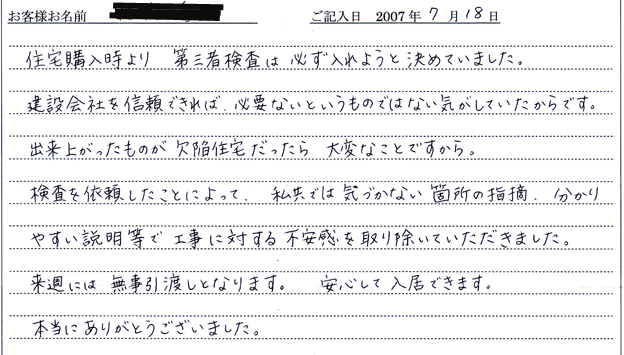 お客様お名前 ご記入日 2007年7月18日
住宅購入時より 第三者検査は必ず入れようと決めていました。
建設会社を信頼できれば、必要ないというものではない気がしていたからです。
出来上がったものが欠陥住宅だったら 大変なことですから。
検査を依頼したことによって、私共では気づかない箇所の指摘、分かり
やすい説明等で工事に対する不安感を取り除いていただきました。
来週には無事引渡しとなります。 安心して入居できます。
本当にありがとうございました。